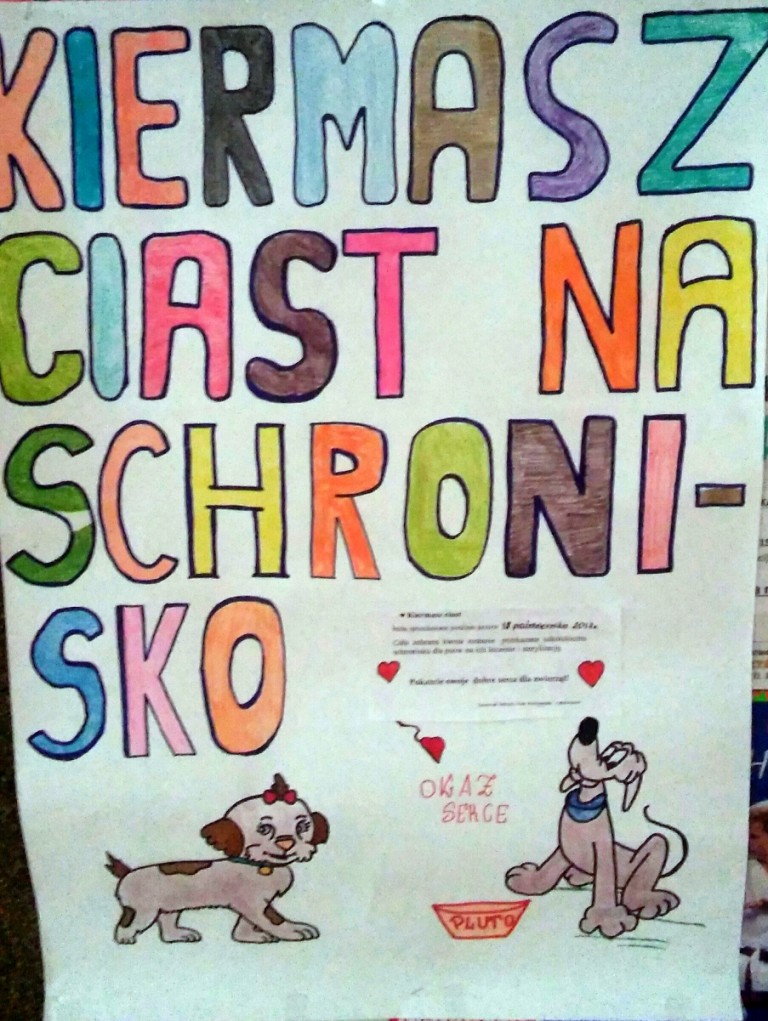 KIERMASZ
CIAST NA
SCHRONI-
SKO
♥ Kiermasz ciast
18 października 2012.
Pokażcie swoje dobre serca dla zwierząt!
OKAŻ
SERCE
PLUTO